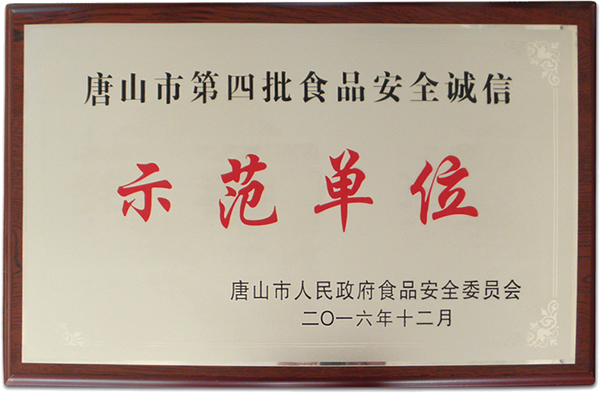 唐山市第四批食品安全诚信
示范单位
唐山市人民政府食品安全委员会
二〇一六年十二月